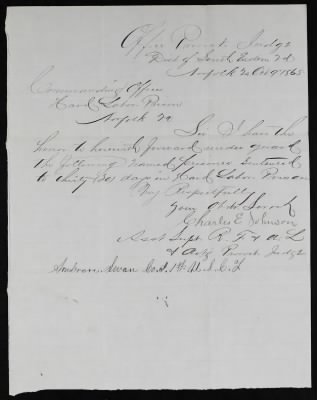 Office Provost Judge
Dist of South Eastern Va
Norfolk Va Oct 9" 1865
Commanding Officer
Hard Labor Prison
Norfolk Va
Sir I have the
honor to herewith forward under guard
the following named Prisoner Sentenced
to thirty (30) days in Hard Labor Prison
Very Respectfully
Your Obt Servt
Charles E Johnson
Asst Supt R. F. & A. L
& Actg Provost Judge
Swan Co. A. 1st U. S. C. T.